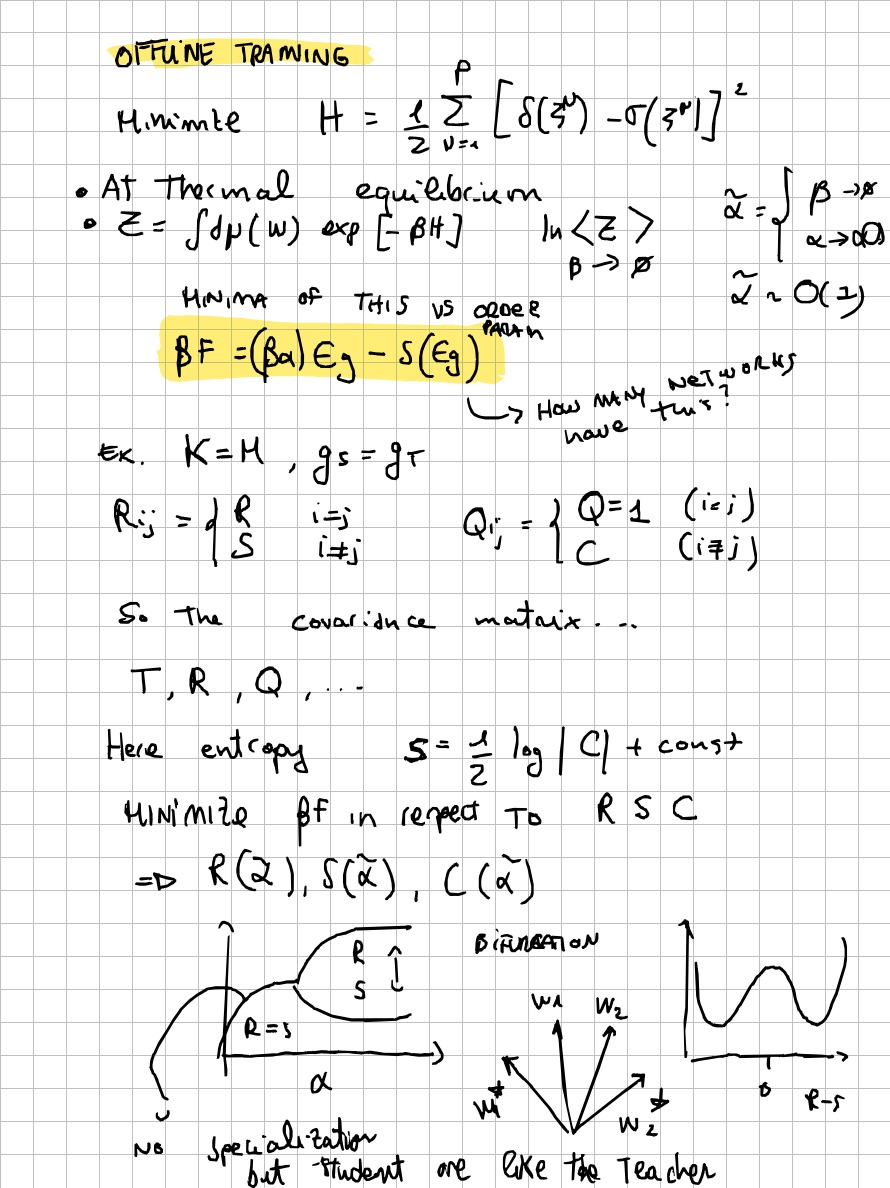 OFFLINE TRAINING
Minimize H = 1/2 Σ_{ν=1}^{P} [δ(ξ^ν) - σ(ξ^ν)]²
• At Thermal equilibrium
• Z = ∫dμ(W) exp [-βH] ln <Z> β → ∅
α̃ = { β → ∅
α → ∞
α̃ ~ O(1)
MINIMA OF THIS VS ORDER PARAM
βF = (βα) Eg - S(Eg)
↳ HOW MANY NETWORKS
have this?
Ex. K=M, gs = gT
Rij = { R i=j
S i≠j
Qij = { Q=1 (i=j)
C (i≠j)
So The covariance matrix...
T, R, Q, ...
Here entropy S = 1/2 log |C| + const
MINIMIZE βF in respect TO R S C
=> R(α̃), S(α̃), C(α̃)
R
S
R=S
α
BIFURCATION
W1 W2
W1* W2*
0 R-S
NO Specialization
but student are like the Teacher